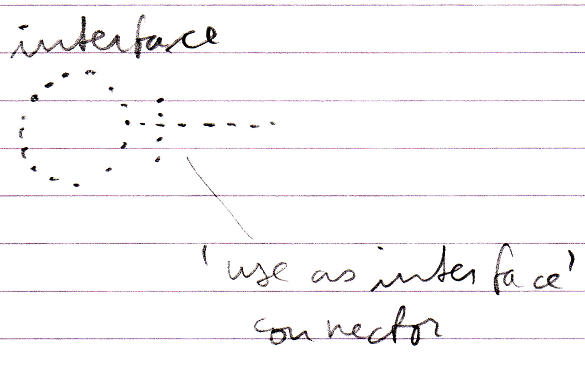 interface
'use as interface'
connector